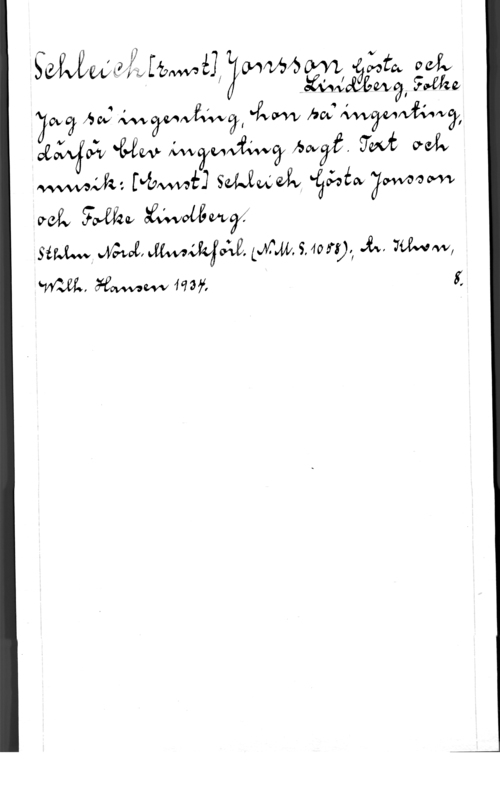 Schleich [Ernst], Jonsson, Gösta och
Lindberg, Folke
Jag sa' ingenting, hon sa' ingenting,
därför blev ingenting sagt. Text och
musik: [Ernst] Schleich, Gösta Jonsson
och Folke Lindberg.
Sthlm, Nord. Musikförl. (N.M.S. 1058); Kr. Khvn,
Wilh. Hansen 1934. 8.